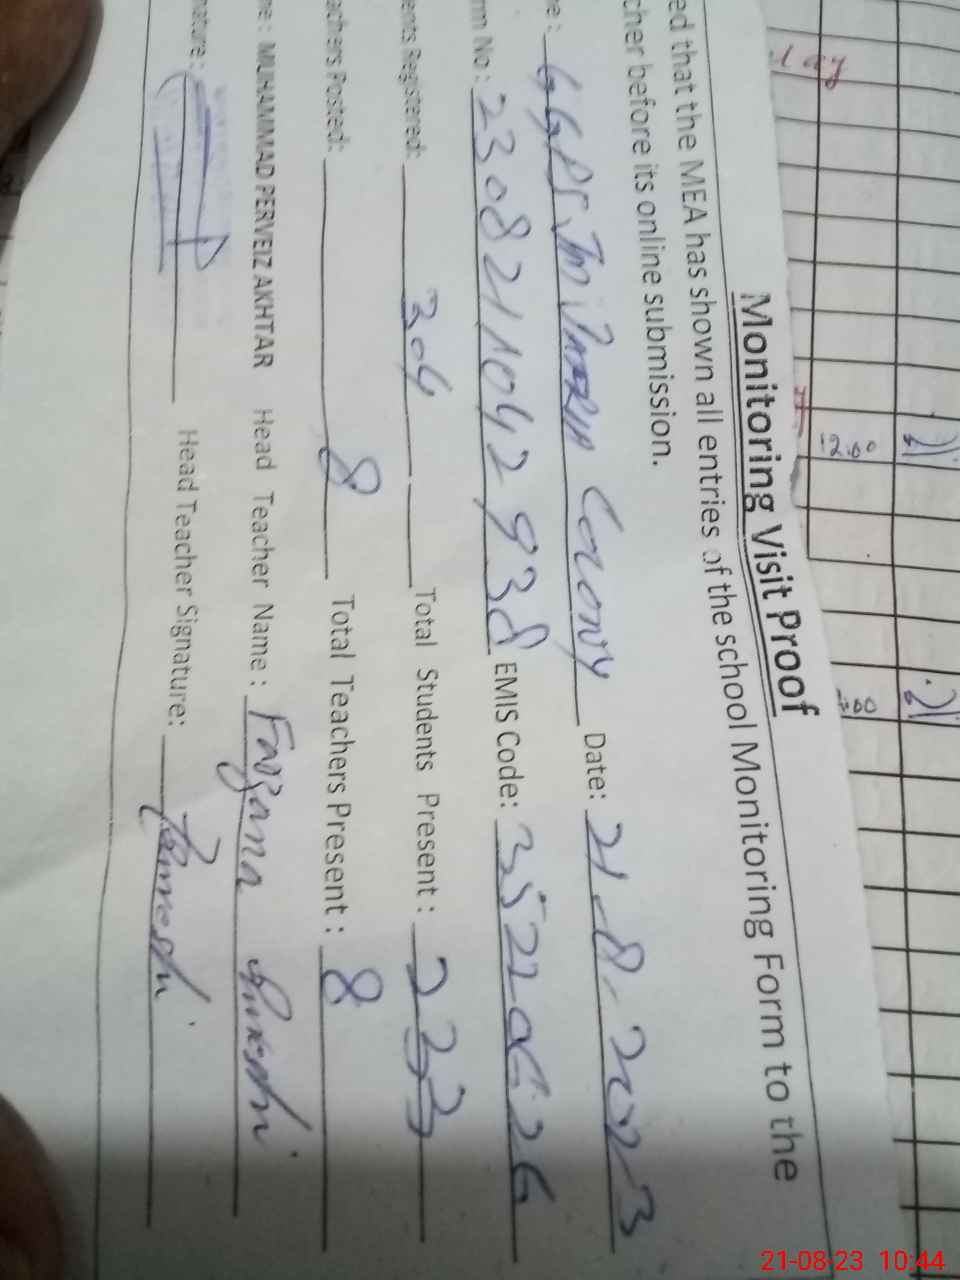 Monitoring Visit Proof
ed that the MEA has shown all entries of the school Monitoring Form to the
cher before its online submission.
e: GGPS Colony Date: 21-8-2023
rm No: 2308211042938 EMIS Code: 35220626
ents Registered: 304 Total Students Present: 233
achers Posted: 8 Total Teachers Present: 8
ne: MUHAMMAD PERVEIZ AKHTAR Head Teacher Name: Farzana
nature: Head Teacher Signature:
21-08-23 10:44